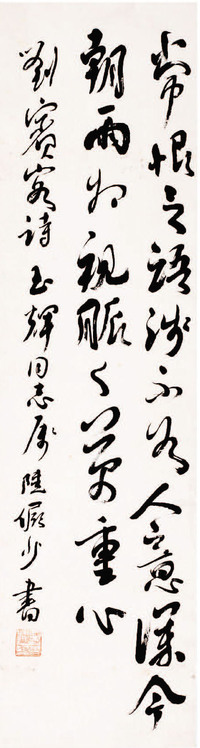 常恨言語淺不如人意深今
朝兩相視脈々萬重心
劉賓客詩 玉輝同志屬 陸儼少書